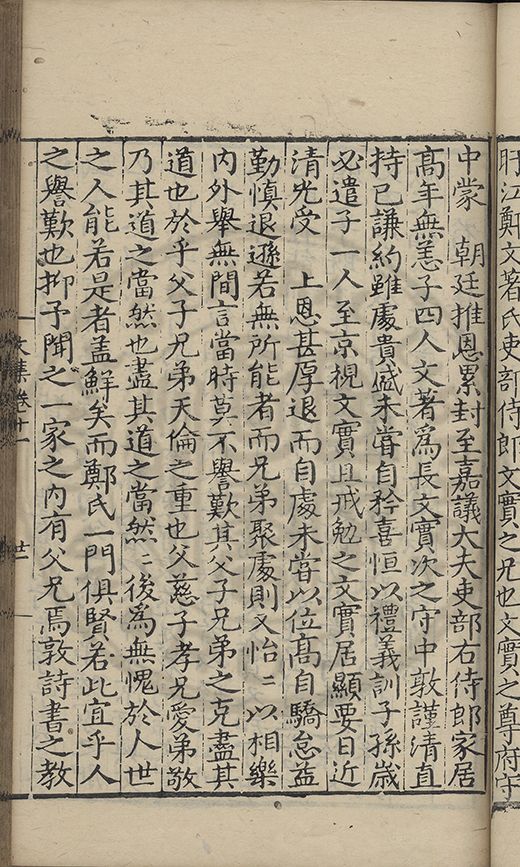 盱江鄭文著氏吏部侍郎文實之兄也文實之尊府守
中蒙　朝廷推恩累封至嘉議大夫吏部右侍郎家居
高年無恙子四人文著爲長文實次之守中敦謹清直
持已謙約雖處貴盛未嘗自矜喜恒以禮義訓子孫歲
必遣子一人至京視文實且戒勉之文實居顯要日近
清光受　上恩甚厚退而自處未嘗以位髙自驕怠益
勤慎退遜若無所能者而兄弟聚處則又怡〻以相樂
内外舉無間言當時莫不譽歎其父子兄弟之克盡其
道也於乎父子兄弟天倫之重也父慈子孝兄愛弟敬
乃其道之當然也盡其道之當然〻後爲無愧於人世
之人能若是者盖鮮矣而鄭氏一門俱賢若此宜乎人
之譽歎也抑予聞之一家之内有父兄焉敦詩書之教
文集卷十一
廿一